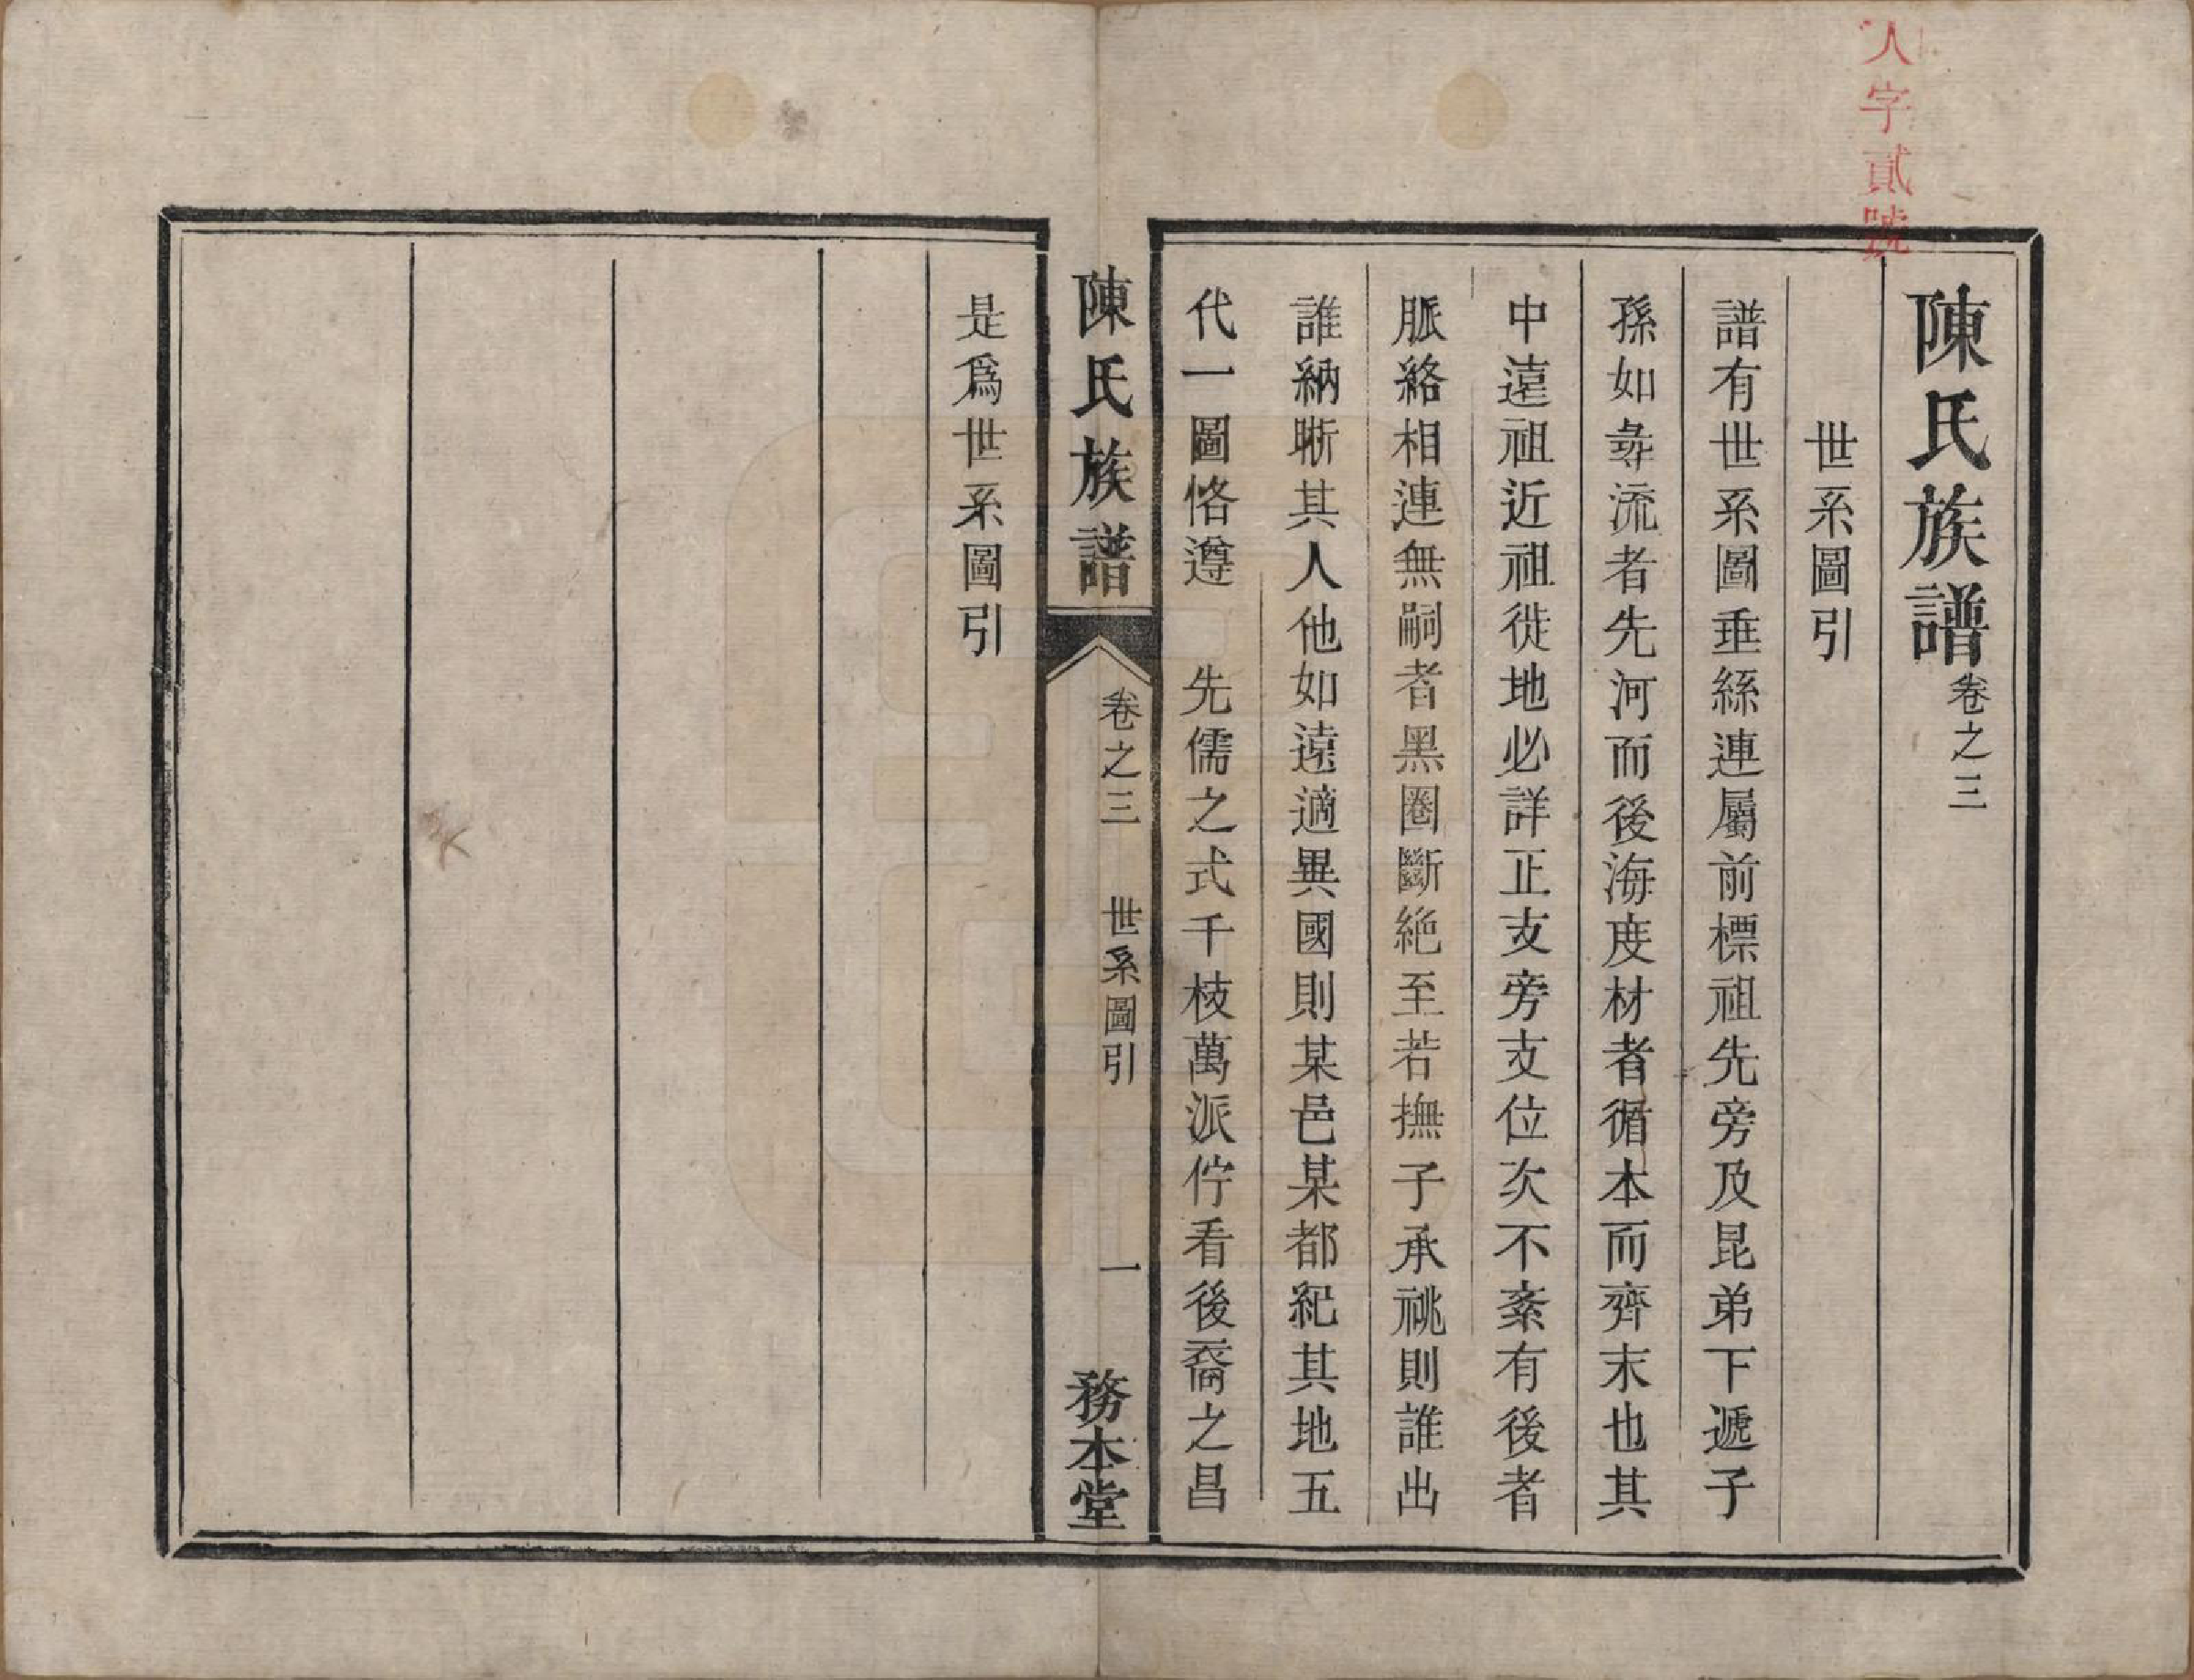 人字貳號
陳氏族譜卷之三
世系圖引
譜有世系圖垂絲連屬前標祖先旁及昆弟下遞子
孫如彛流者先河而後海度材者循本而齊末也其
中遠祖近祖徙地必詳正支旁支位次不紊有後者
脈絡相連無嗣者黑圈斷絕至若撫子承祧則誰出
誰納晰其人他如遠適異國則某邑某都紀其地五
代一圖恪遵　先儒之式千枝萬派佇看後裔之昌
陳氏族譜　卷之三　世系圖引　一　務本堂
是爲世系圖引